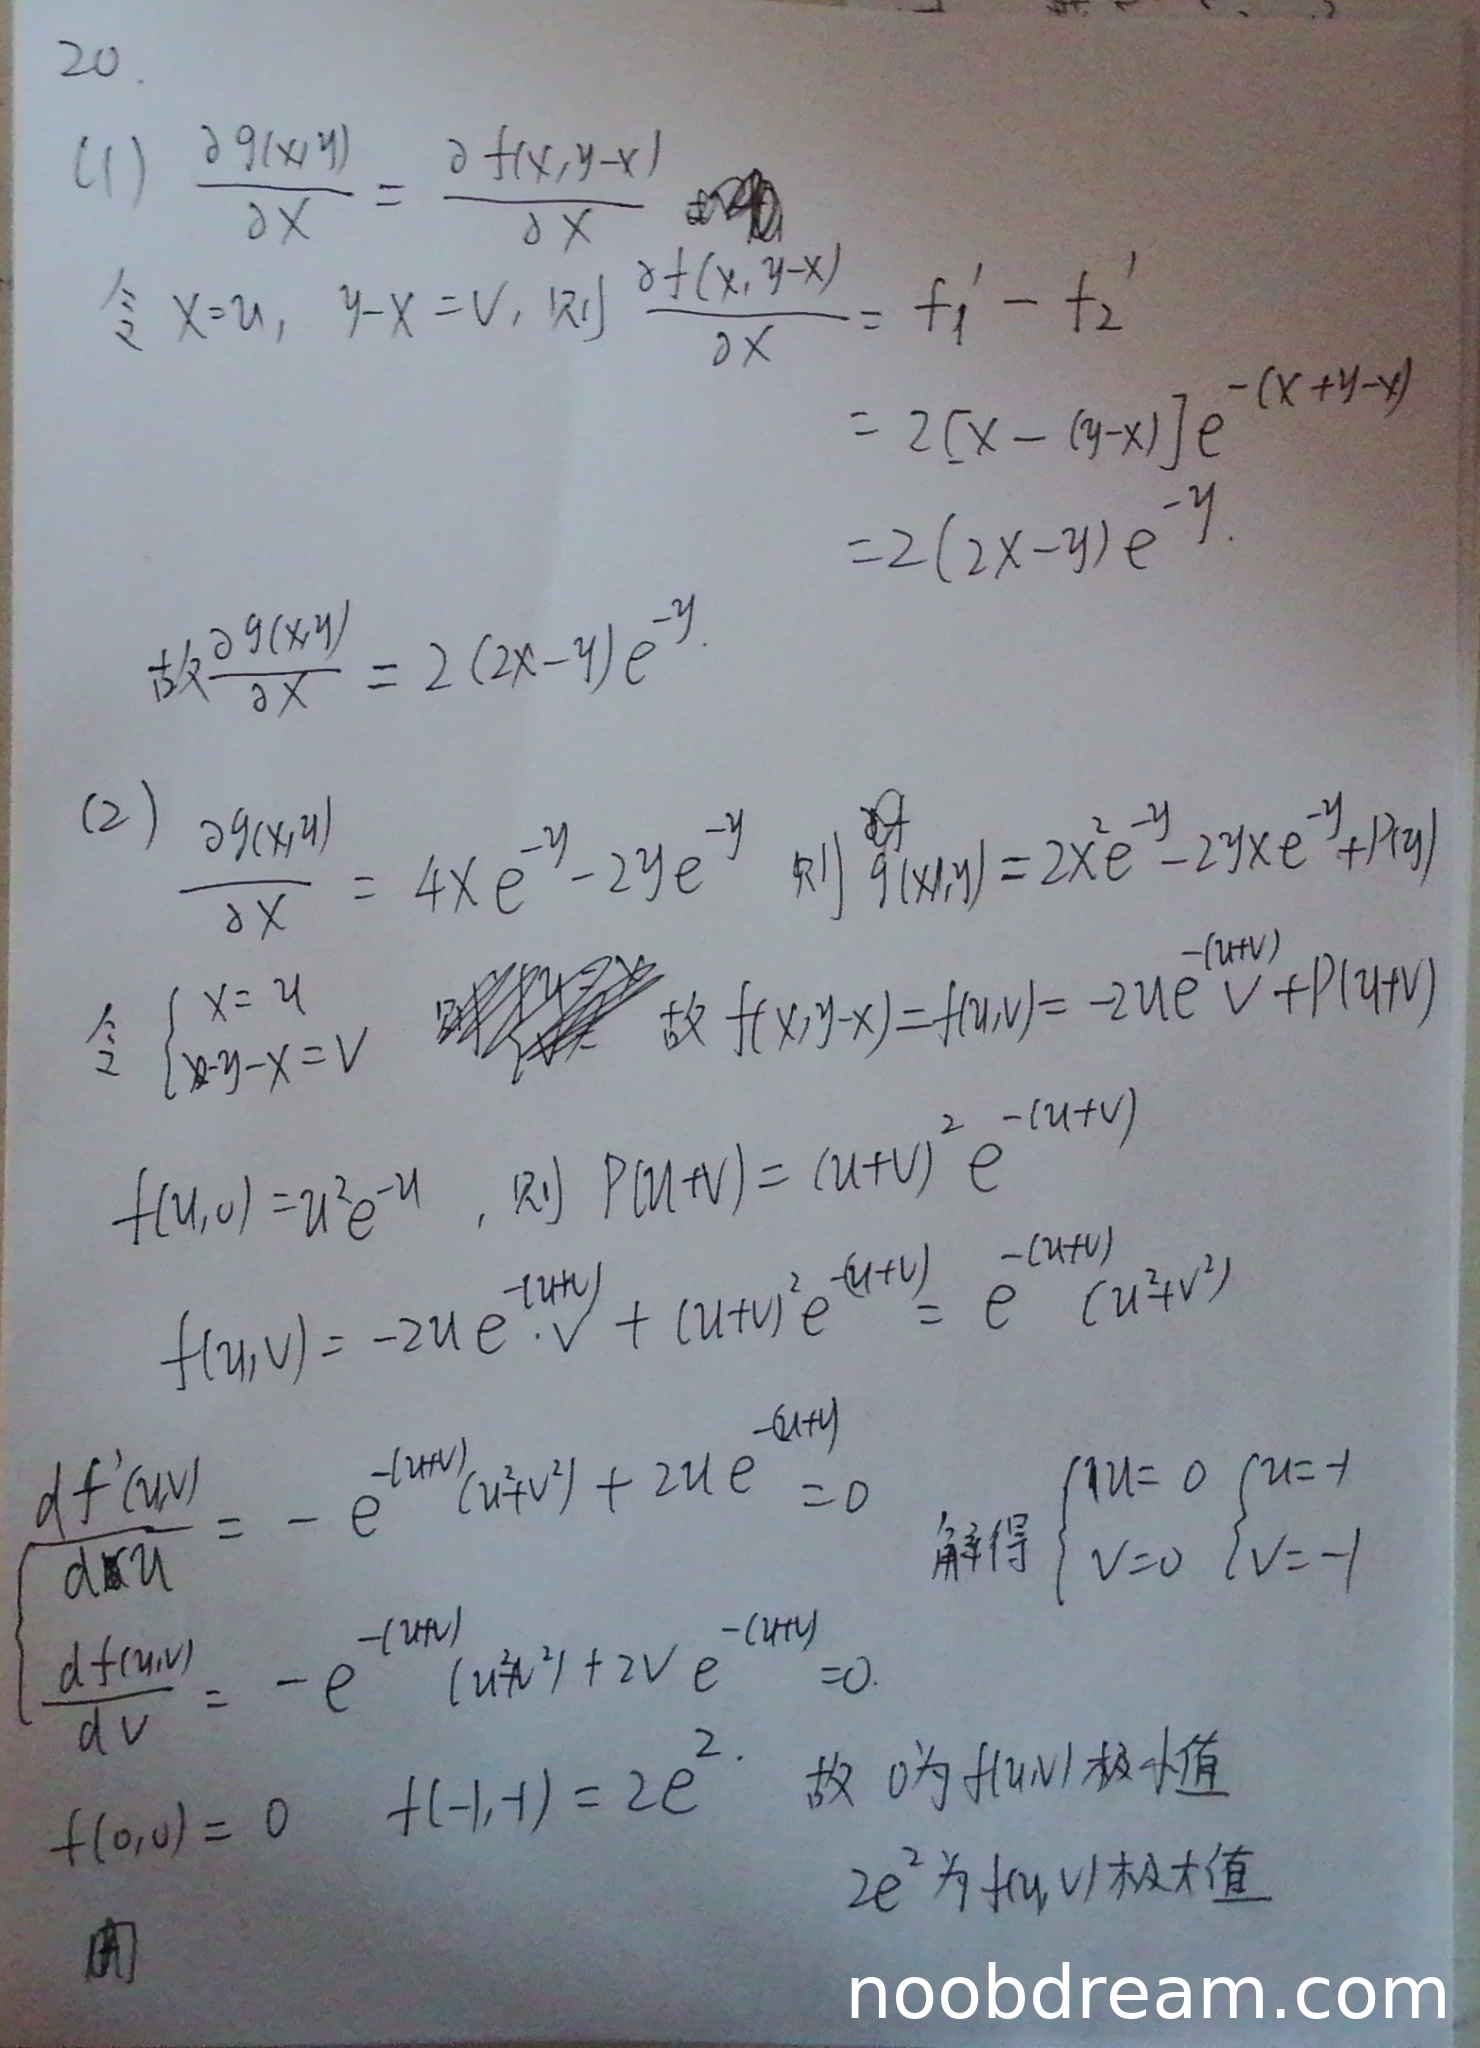 20.
(1) ∂g(x,y)/∂x = ∂f(x,y-x)/∂x
令 x=u, y-x=v, 则 ∂f(x,y-x)/∂x = f₁' - f₂'
= 2[x-(y-x)]e^{-(x+y-x)}
=2(2x-y)e^{-y}.
故 ∂g(x,y)/∂x = 2(2x-y)e^{-y}.
(2) ∂g(x,y)/∂x = 4xe^{-y}-2ye^{-y} 则 g(x,y)=2x²e^{-y}-2yxe^{-y}+P(y)
令 { x=u y-x=v 故 f(x,y-x)=f(u,v)=-2ue^{-(u+v)}v+P(u+v)
f(u,0)=u²e^{-u}, 则 P(u+v)=(u+v)²e^{-(u+v)}
f(u,v)=-2ue^{-(u+v)}·v+(u+v)²e^{-(u+v)}=e^{-(u+v)}(u²+v²)
{ df'(u,v)/du = -e^{-(u+v)}(u²+v²)+2ue^{-(u+v)}=0
解得 { u=0 v=0 { u=-1 v=-1
df(u,v)/dv = -e^{-(u+v)}(u²+v²)+2ve^{-(u+v)}=0.
f(0,0)=0 f(-1,-1)=2e². 故 0为f(u,v)极小值
2e²为f(u,v)极大值
noobdream.com